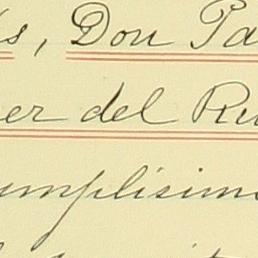 s, Don Pa
er del Ru
umplisimo